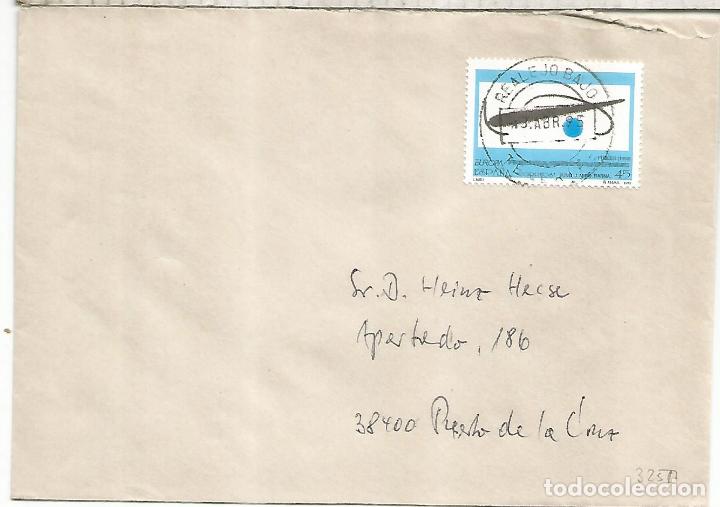 REALEJO BAJO
ABR.95
EUROPA
ESPAÑA
45
Sr. D. Heinz Hecse
Apartado, 186
38400 Puerto de la Cruz
todocoleccion